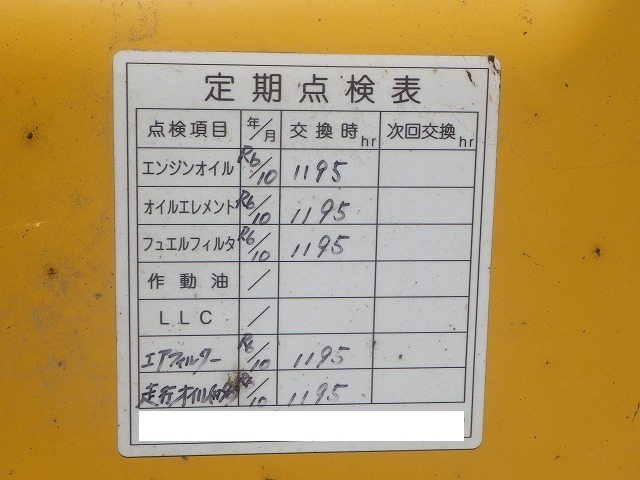 定期点検表
点検項目 年/月 交換時hr 次回交換hr
エンジンオイル R6/10 1195
オイルエレメント R6/10 1195
フュエルフィルタ R6/10 1195
作動油 /
LLC /
エアフィルター R6/10 1195
走行オイル R6/10 1195